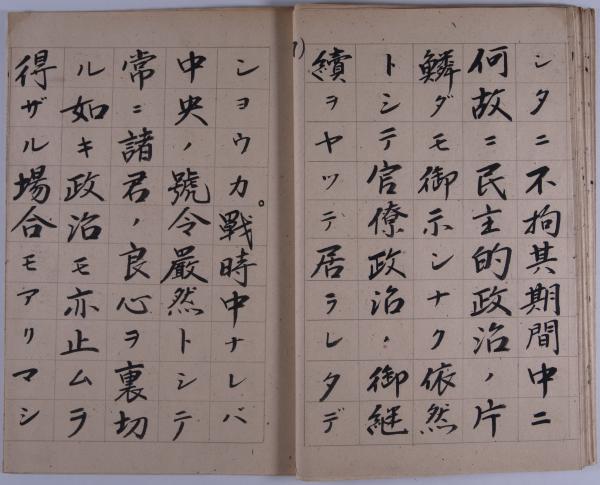 シタニ不拘其期間中ニ
何故ニ民主的政治ノ片
鱗ダモ御示シナク依然
トシテ官僚政治ノ御継
續ヲヤツテ居ラレタデ
シヨウカ。戰時中ナレバ
中央ノ號令嚴然トシテ
常ニ諸君ノ良心ヲ裏切
ル如キ政治モ亦止ムラ
得ザル場合モアリマシ